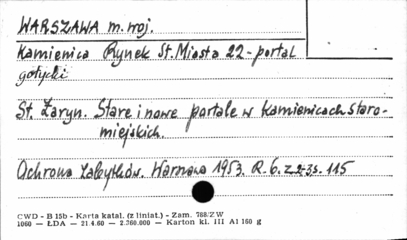 WARSZAWA m. woj.
Kamienica Rynek St. Miasta 22 - portal
gotycki
St. Żaryn. Stare i nowe portale w kamienicach staro-
miejskich.
Ochrona Zabytków. Warszawa 1953. R. 6. z. 2-3 s. 115
CWD - B 15b - Karta katal. (z liniat.) - Zam. 788/Z W
1060 — ŁDA — 21.4.60 — 2.760.000 — Karton kl. III A1 160 g